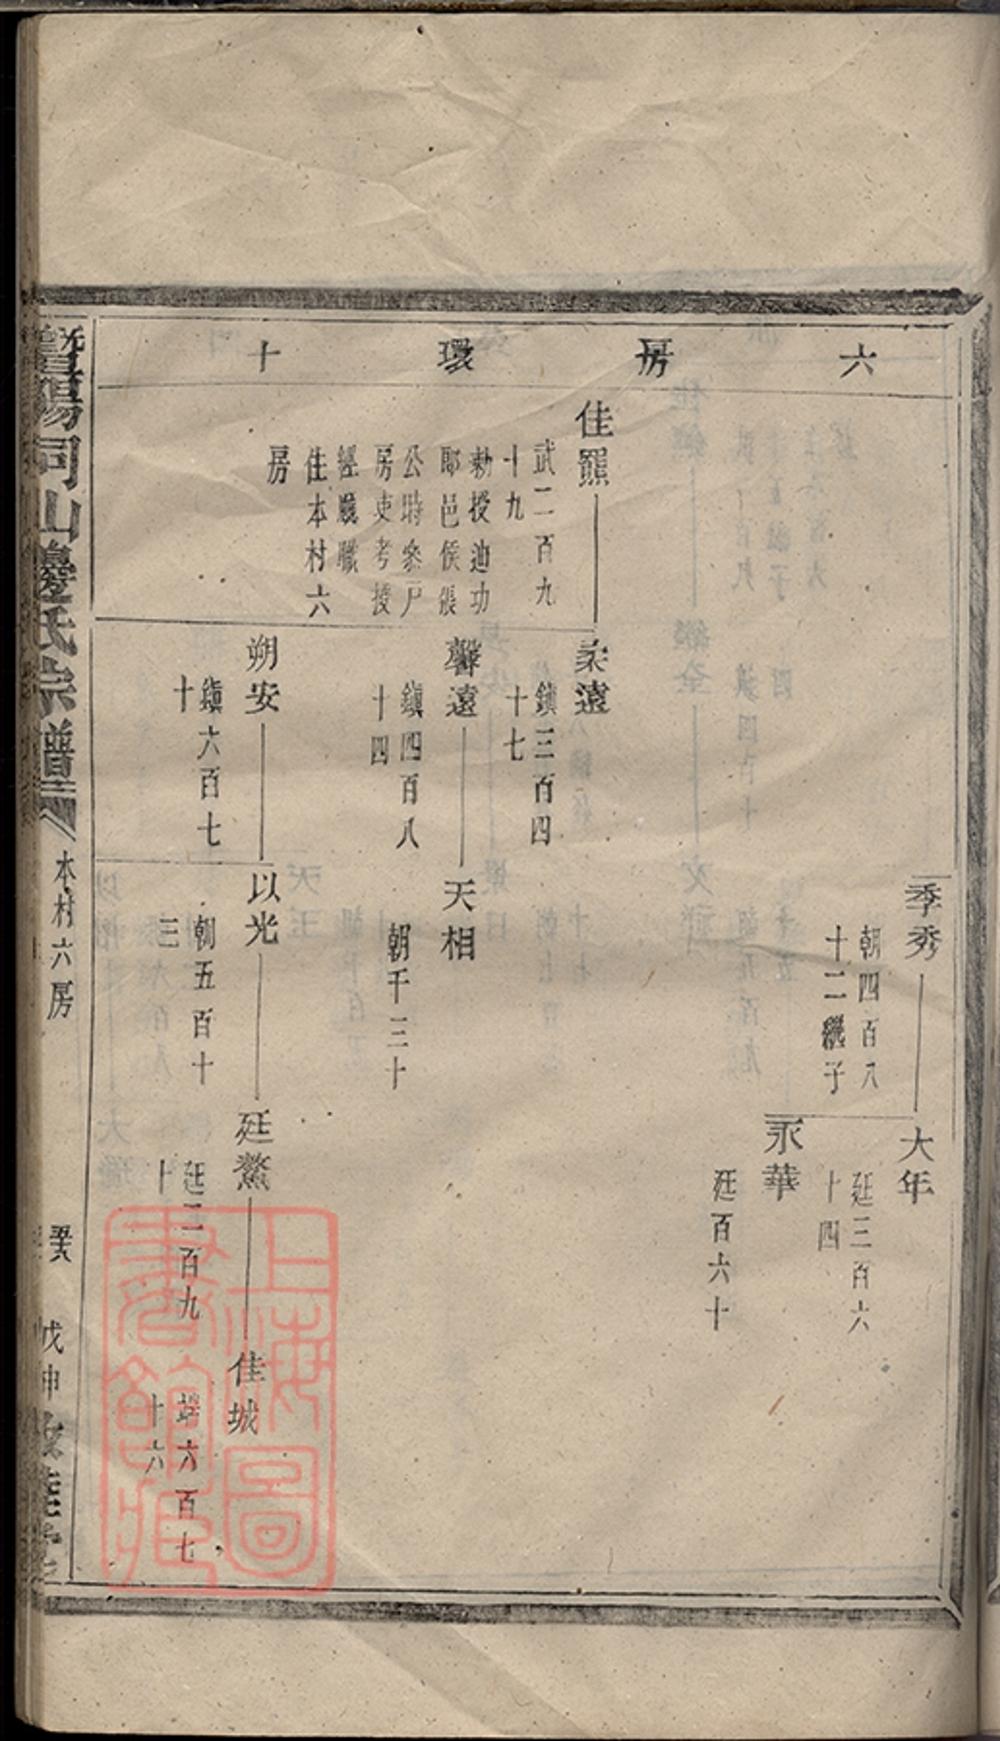 六房環十
季秀
朝四百八
十二繼子
大年
廷三百六
十四
永華
廷百六十
佳羆
武二百九
十九
勅授迪功
郎邑侯張
公時叅戸
房吏考授
經廳職
住本村六
房
柔遠
鎮三百四
十七
馨遠
鎮四百八
十四
天相
朝千三十
朔安
鎮六百七
十
以光
朝五百十
三
廷鰲
廷二百九
十
佳城
六百七
十六
暨陽同山邊氏宗譜
本村六房
戊申
上海圖書館藏